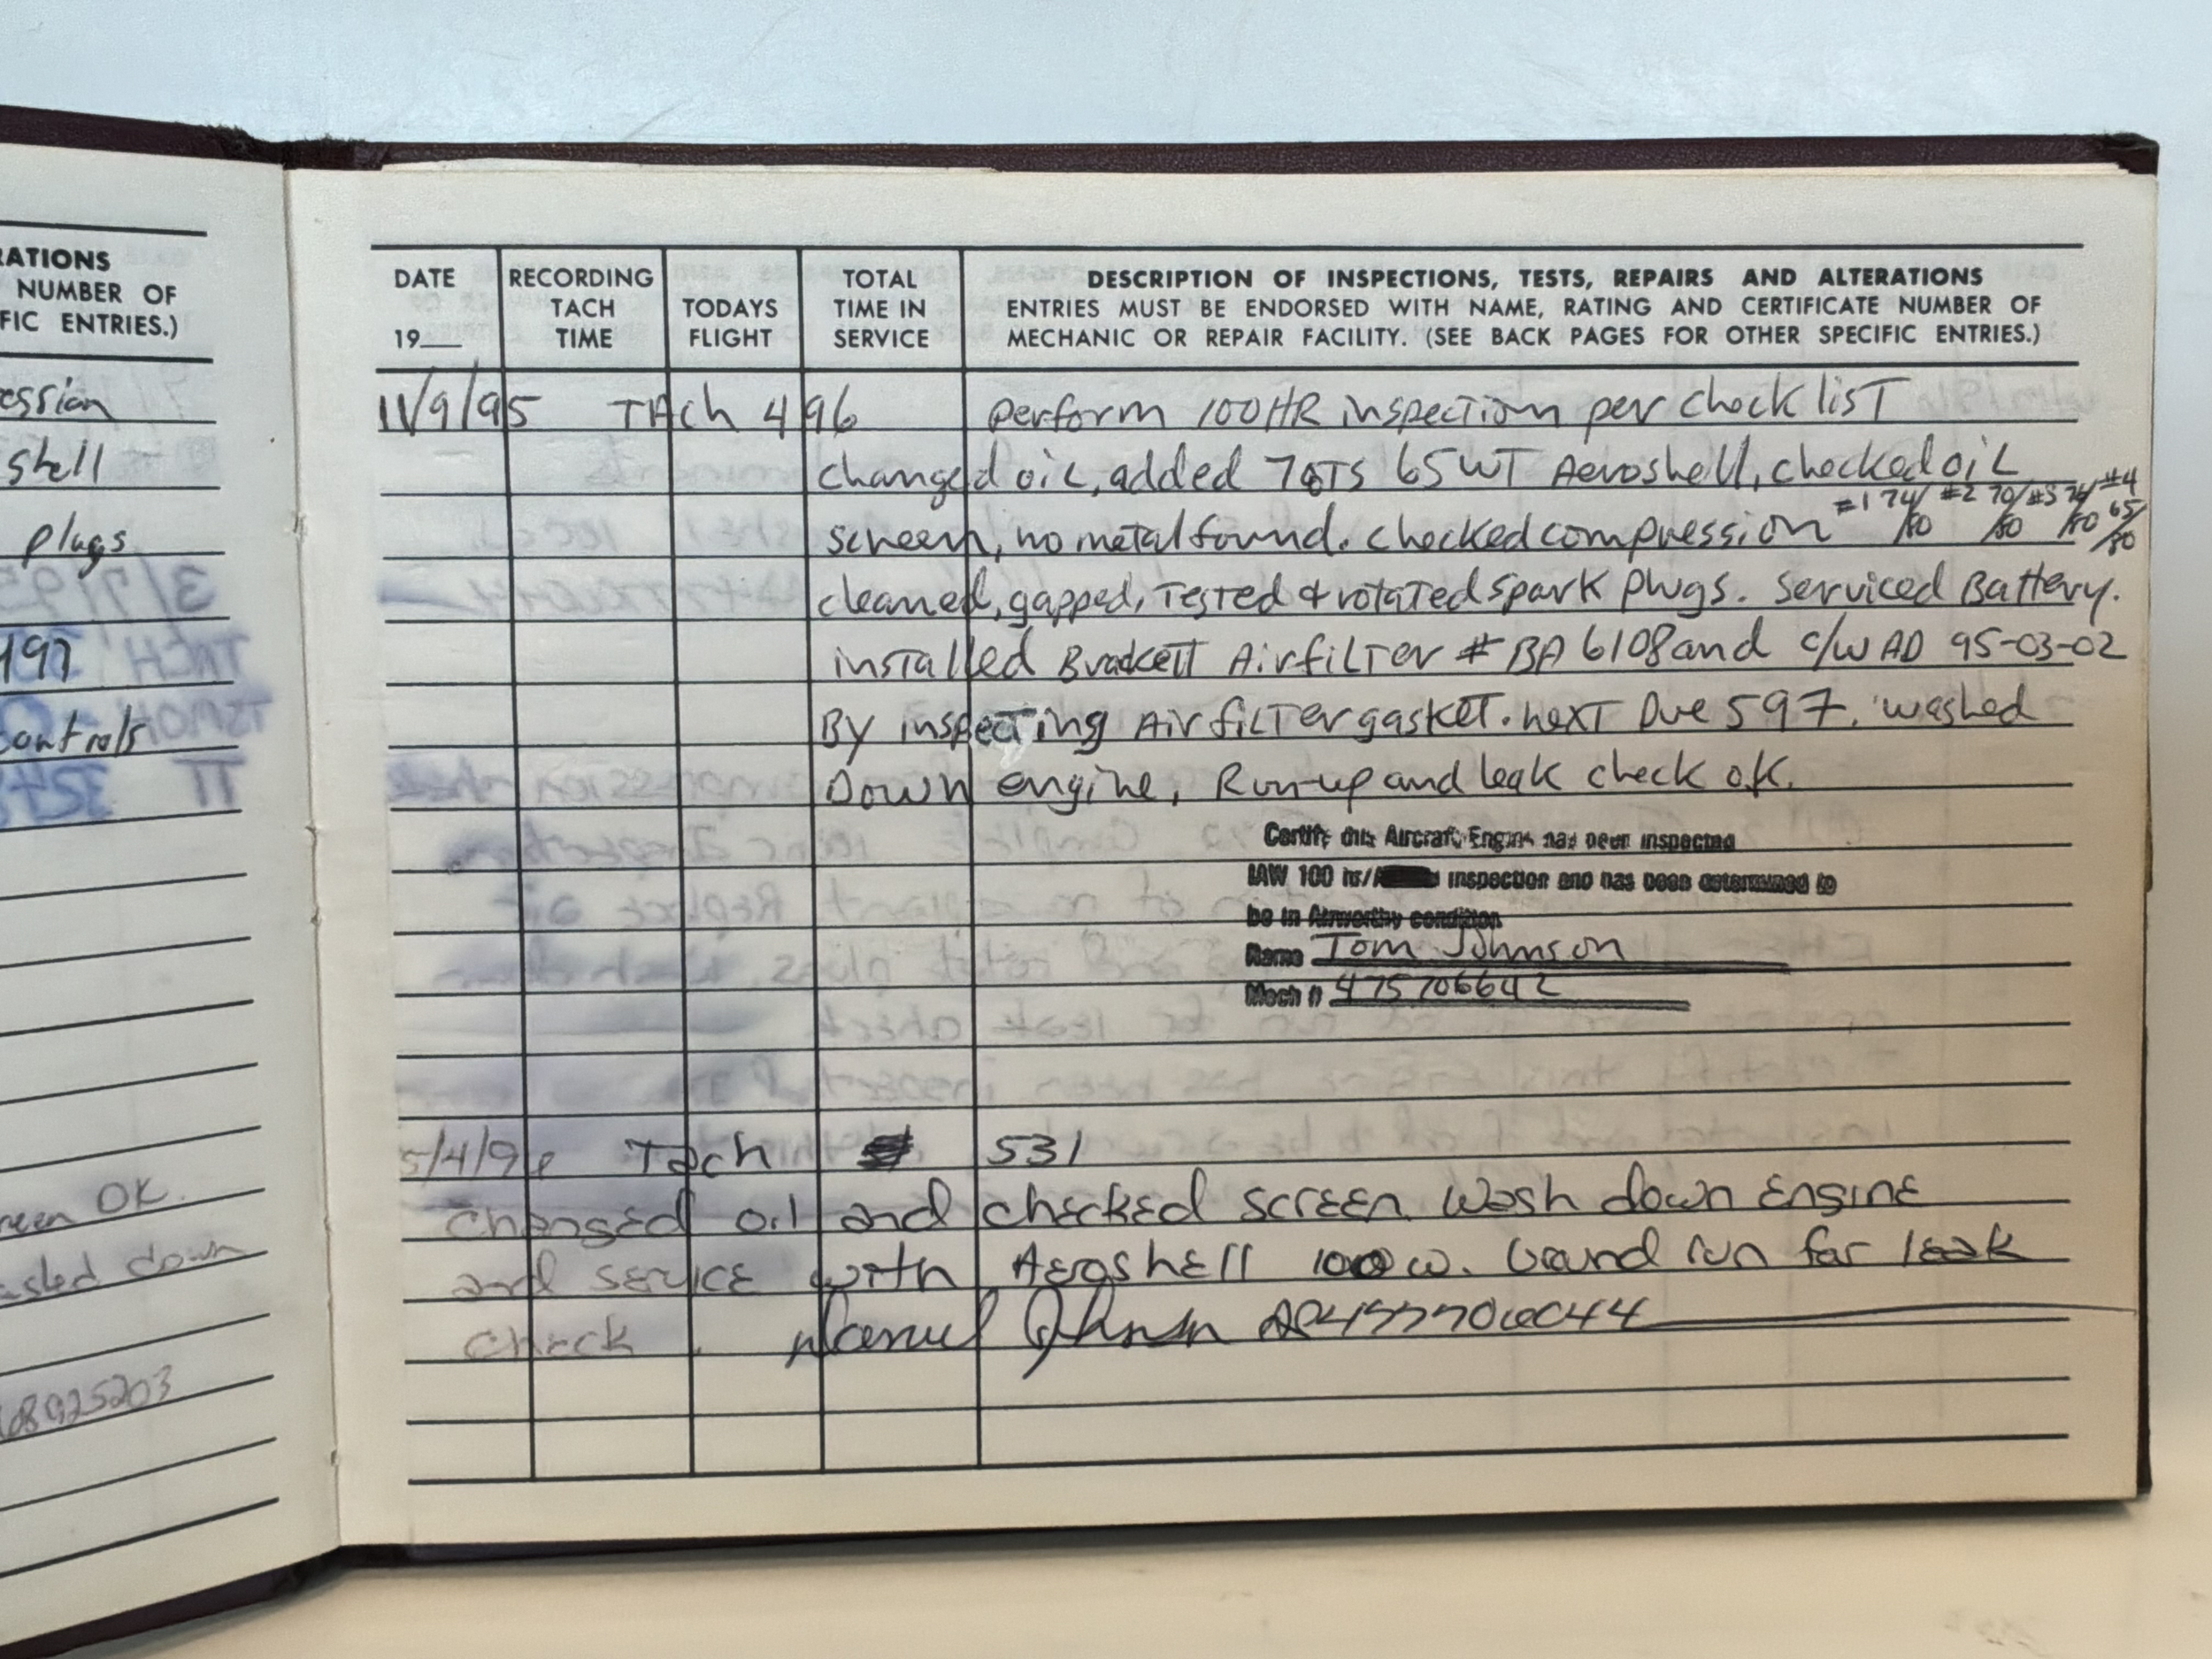 RATIONS
NUMBER OF
FIC ENTRIES.)
ession
shell
plugs
197
controls
reen OK.
ashed down
DATE
19__
RECORDING
TACH
TIME
TODAYS
FLIGHT
TOTAL
TIME IN
SERVICE
DESCRIPTION OF INSPECTIONS, TESTS, REPAIRS AND ALTERATIONS
ENTRIES MUST BE ENDORSED WITH NAME, RATING AND CERTIFICATE NUMBER OF
MECHANIC OR REPAIR FACILITY. (SEE BACK PAGES FOR OTHER SPECIFIC ENTRIES.)
11/9/95 TAch 496 perform 100HR inspection per check list
changed oil, added 7QTS 65WT Aeroshell, checked oil
screen, no metal found. checked compression #1 74/80 #2 70/80 #3 74/80 #4 65/80
cleaned, gapped, Tested & rotated spark plugs. Serviced Battery.
installed Brackett Airfilter # BA 6108 and c/w AD 95-03-02
By inspecting Air filter gasket. next Due 597. washed
Down engine, Run-up and leak check o.k.
Certify this Aircraft Engine has been inspected
IAW 100 hr/ inspection and has been determined to
be in Airworthy condition
Name Tom Johnson
Mech # 475706642
5/4/96 Tach 531
changed oil and checked screen. Wash down Engine
and service with Aeroshell 100w. Ground run for leak
check.
Johnson